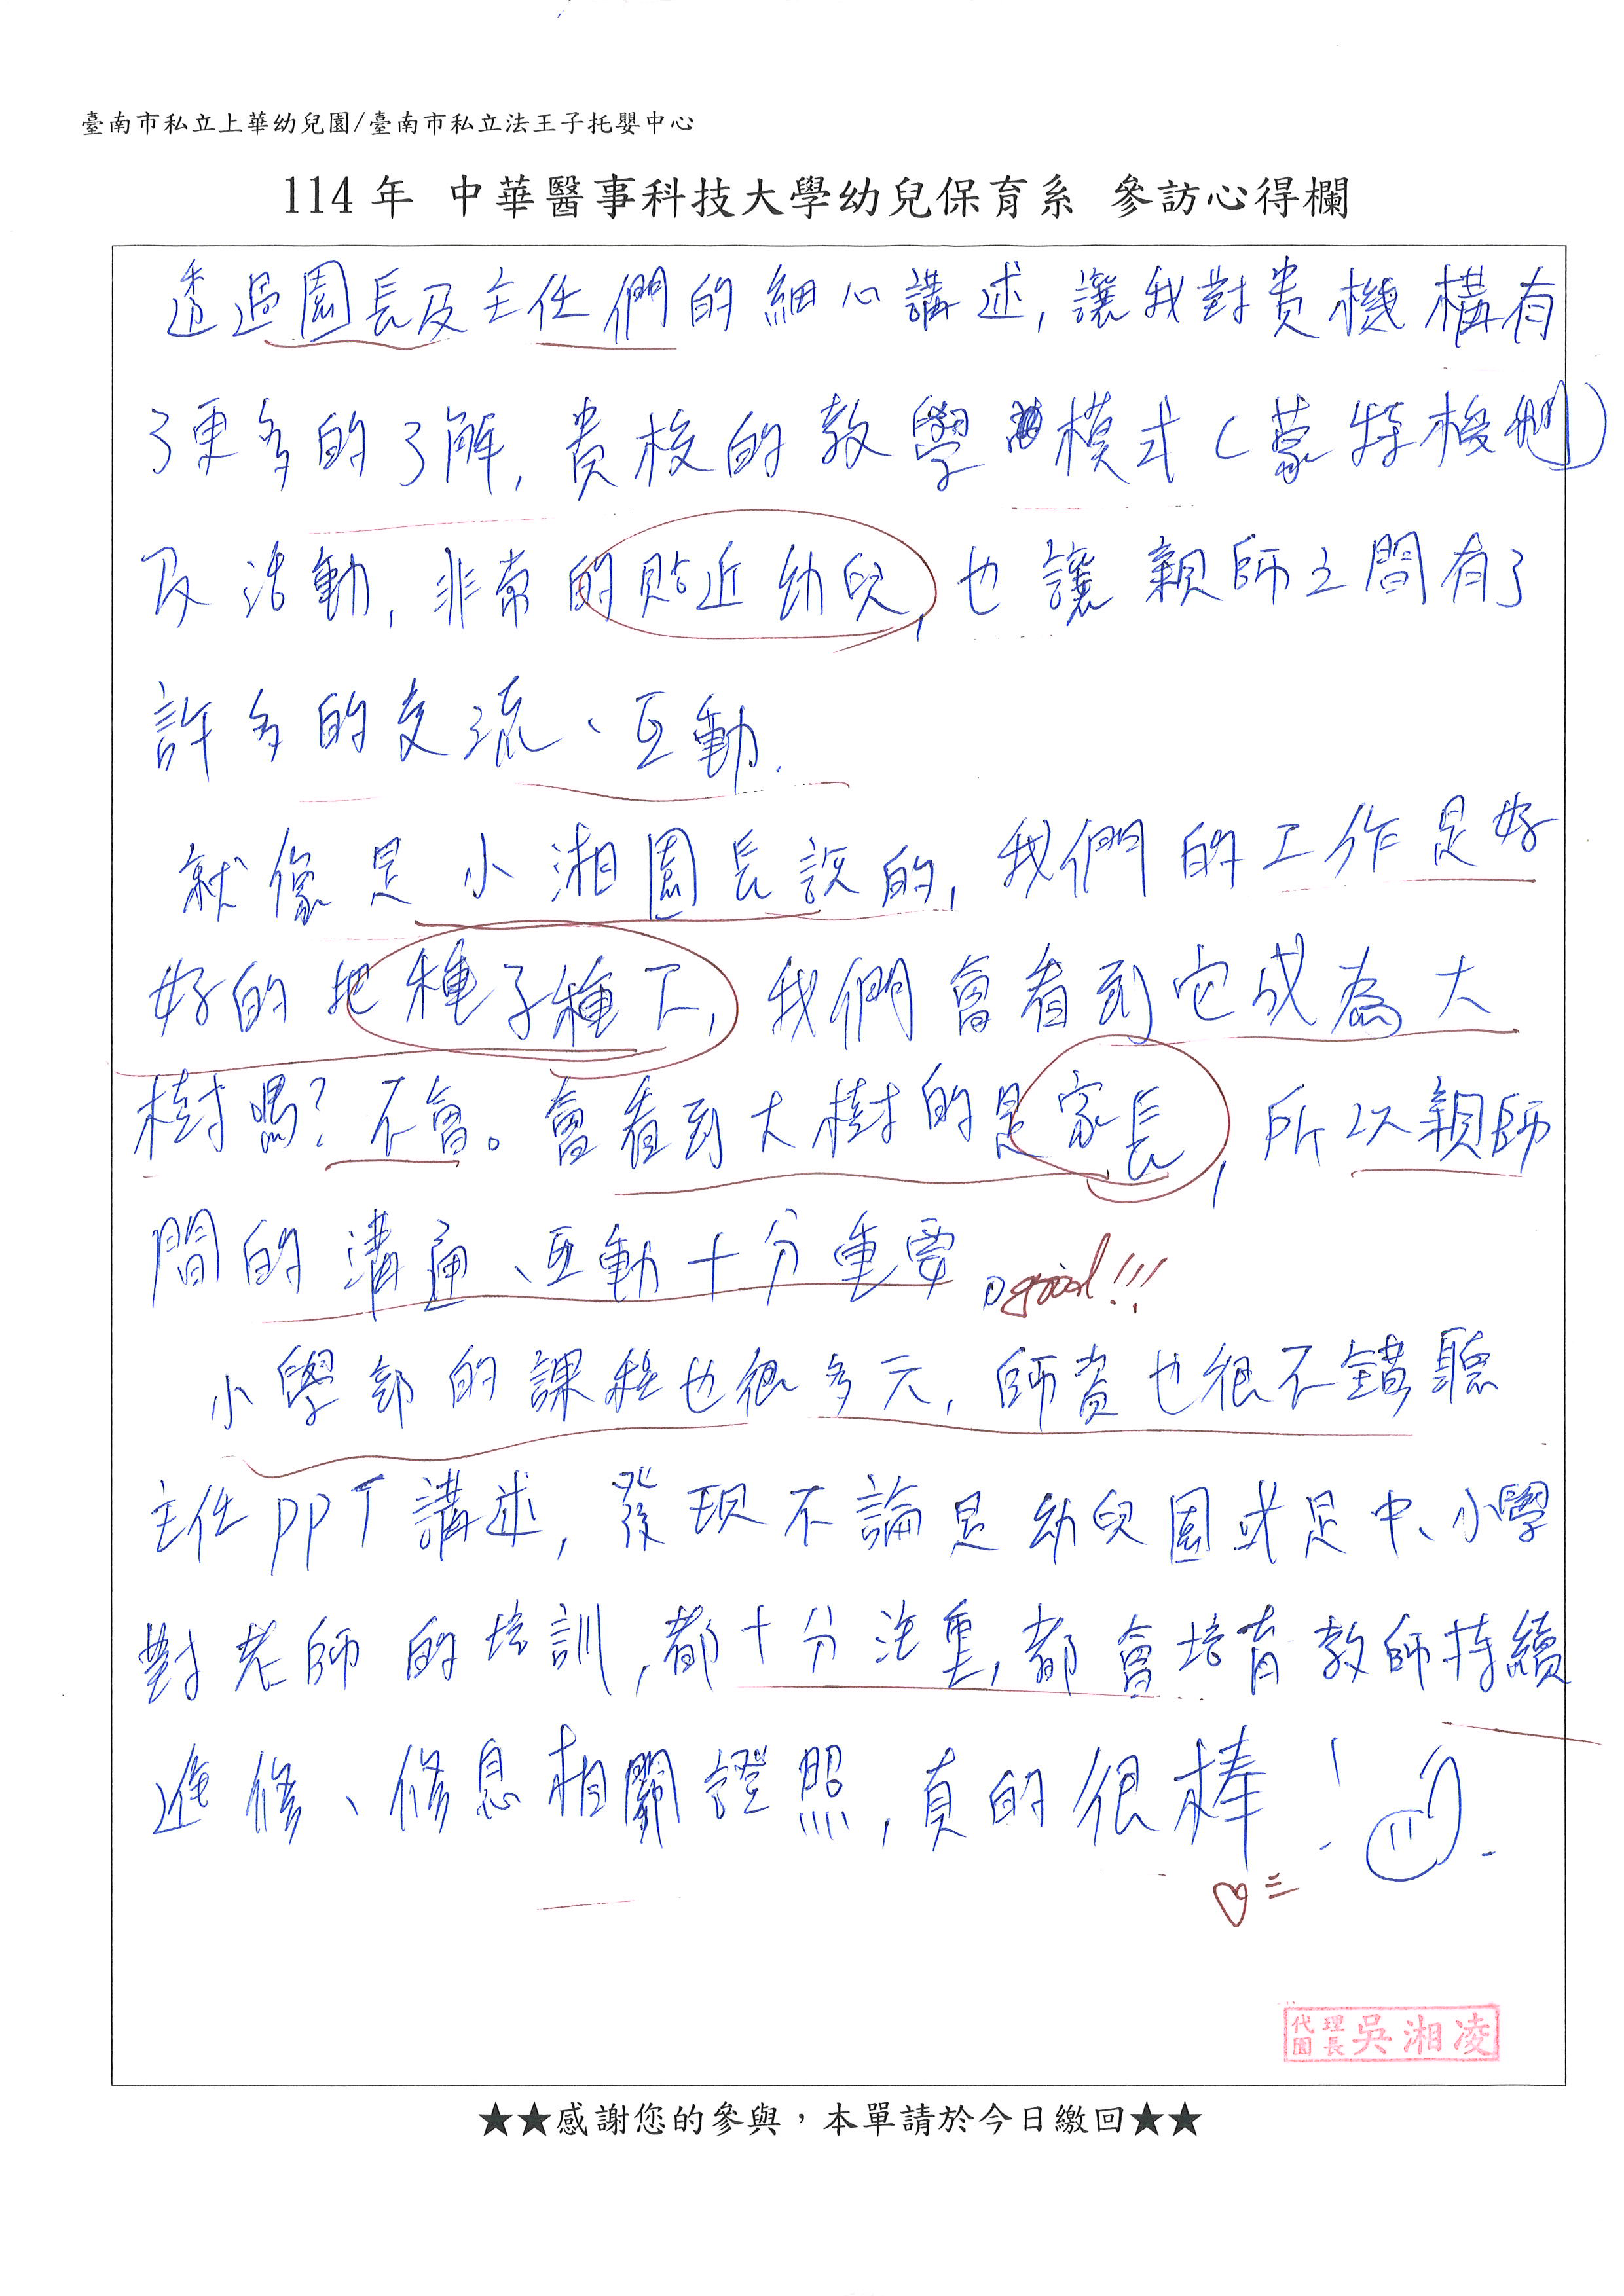 臺南市私立上華幼兒園/臺南市私立法王子托嬰中心
114年 中華醫事科技大學幼兒保育系 參訪心得欄
透過園長及主任們的細心講述,讓我對貴機構有
了更多的了解,貴校的教學模式(蒙特梭利)
及活動,非常的貼近幼兒,也讓親師之間有了
許多的交流、互動.
就像是小湘園長說的,我們的工作是好
好的把種子種下,我們會看到它成為大
樹嗎?不會。會看到大樹的是家長,所以親師
間的溝通、互動十分重要。good!!!
小學部的課程也很多元,師資也很不錯聽
主任PPT講述,發現不論是幼兒園或是中、小學
對老師的培訓,都十分注重,都會培育教師持續
進修、修息相關證照,真的很棒!
代理園長 吳湘凌
★★感謝您的參與,本單請於今日繳回★★